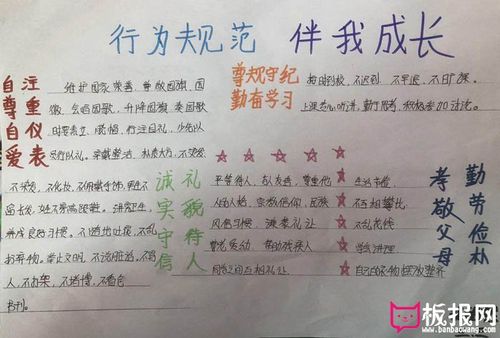 行为规范 伴我成长
自尊自爱
注重仪表
维护国家荣誉，尊敬国旗、国
徽，会唱国歌，升降国旗、奏国歌
时要肃立、脱帽、行注目礼，少先队
员行队礼。穿戴整洁、朴素大方，不烫发
不染发，不化妆，不佩戴首饰，男生不
留长发，女生不穿高跟鞋。讲究卫生，
养成良好习惯。不随地吐痰，不乱
扔弃物。举止文明，不说脏话，不骂
人，不打架，不赌博，不
书刊。
尊规守纪
勤奋学习
按时到校，不迟到，不早退，不旷课。
上课专心听讲，勤于思考，积极参加讨论。
诚实守信
礼貌待人
平等待人，
人的人格、宗教信仰、民族
风俗习惯，谦恭礼让
尊老爱幼，帮助残疾人
同学之间互相礼让
生活节俭
不互相攀比
不乱花钱
学会料理
自己的衣物摆放整齐
孝敬父母
勤劳俭朴
板报网
www.banbaowang.com